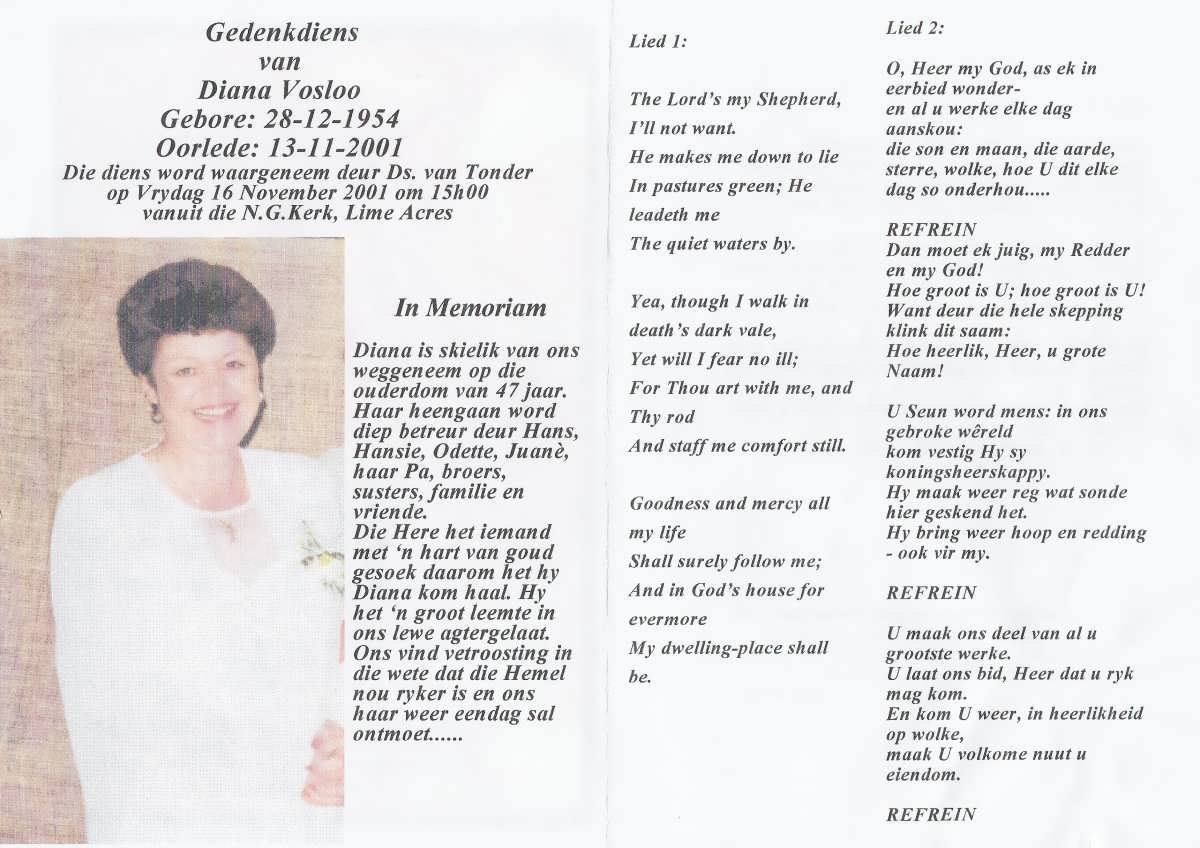 Gedenkdiens
van
Diana Vosloo
Gebore: 28-12-1954
Oorlede: 13-11-2001
Die diens word waargeneem deur Ds. van Tonder
op Vrydag 16 November 2001 om 15h00
vanuit die N.G.Kerk, Lime Acres
In Memoriam
Diana is skielik van ons
weggeneem op die
ouderdom van 47 jaar.
Haar heengaan word
diep betreur deur Hans,
Hansie, Odette, Juanè,
haar Pa, broers,
susters, familie en
vriende.
Die Here het iemand
met ‘n hart van goud
gesoek daarom het hy
Diana kom haal. Hy
het ‘n groot leemte in
ons lewe agtergelaat.
Ons vind vetroosting in
die wete dat die Hemel
nou ryker is en ons
haar weer eendag sal
ontmoet......
Lied 1:
The Lord’s my Shepherd,
I’ll not want.
He makes me down to lie
In pastures green; He
leadeth me
The quiet waters by.
Yea, though I walk in
death’s dark vale,
Yet will I fear no ill;
For Thou art with me, and
Thy rod
And staff me comfort still.
Goodness and mercy all
my life
Shall surely follow me;
And in God’s house for
evermore
My dwelling-place shall
be.
Lied 2:
O, Heer my God, as ek in
eerbied wonder-
en al u werke elke dag
aanskou:
die son en maan, die aarde,
sterre, wolke, hoe U dit elke
dag so onderhou.....
REFREIN
Dan moet ek juig, my Redder
en my God!
Hoe groot is U; hoe groot is U!
Want deur die hele skepping
klink dit saam:
Hoe heerlik, Heer, u grote
Naam!
U Seun word mens: in ons
gebroke wêreld
kom vestig Hy sy
koningsheerskappy.
Hy maak weer reg wat sonde
hier geskend het.
Hy bring weer hoop en redding
- ook vir my.
REFREIN
U maak ons deel van al u
grootste werke.
U laat ons bid, Heer dat u ryk
mag kom.
En kom U weer, in heerlikheid
op wolke,
maak U volkome nuut u
eiendom.
REFREIN